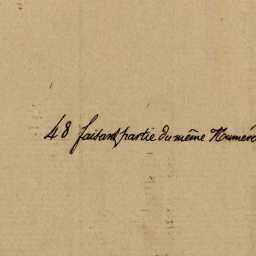 48 faisant partie du même Numéro